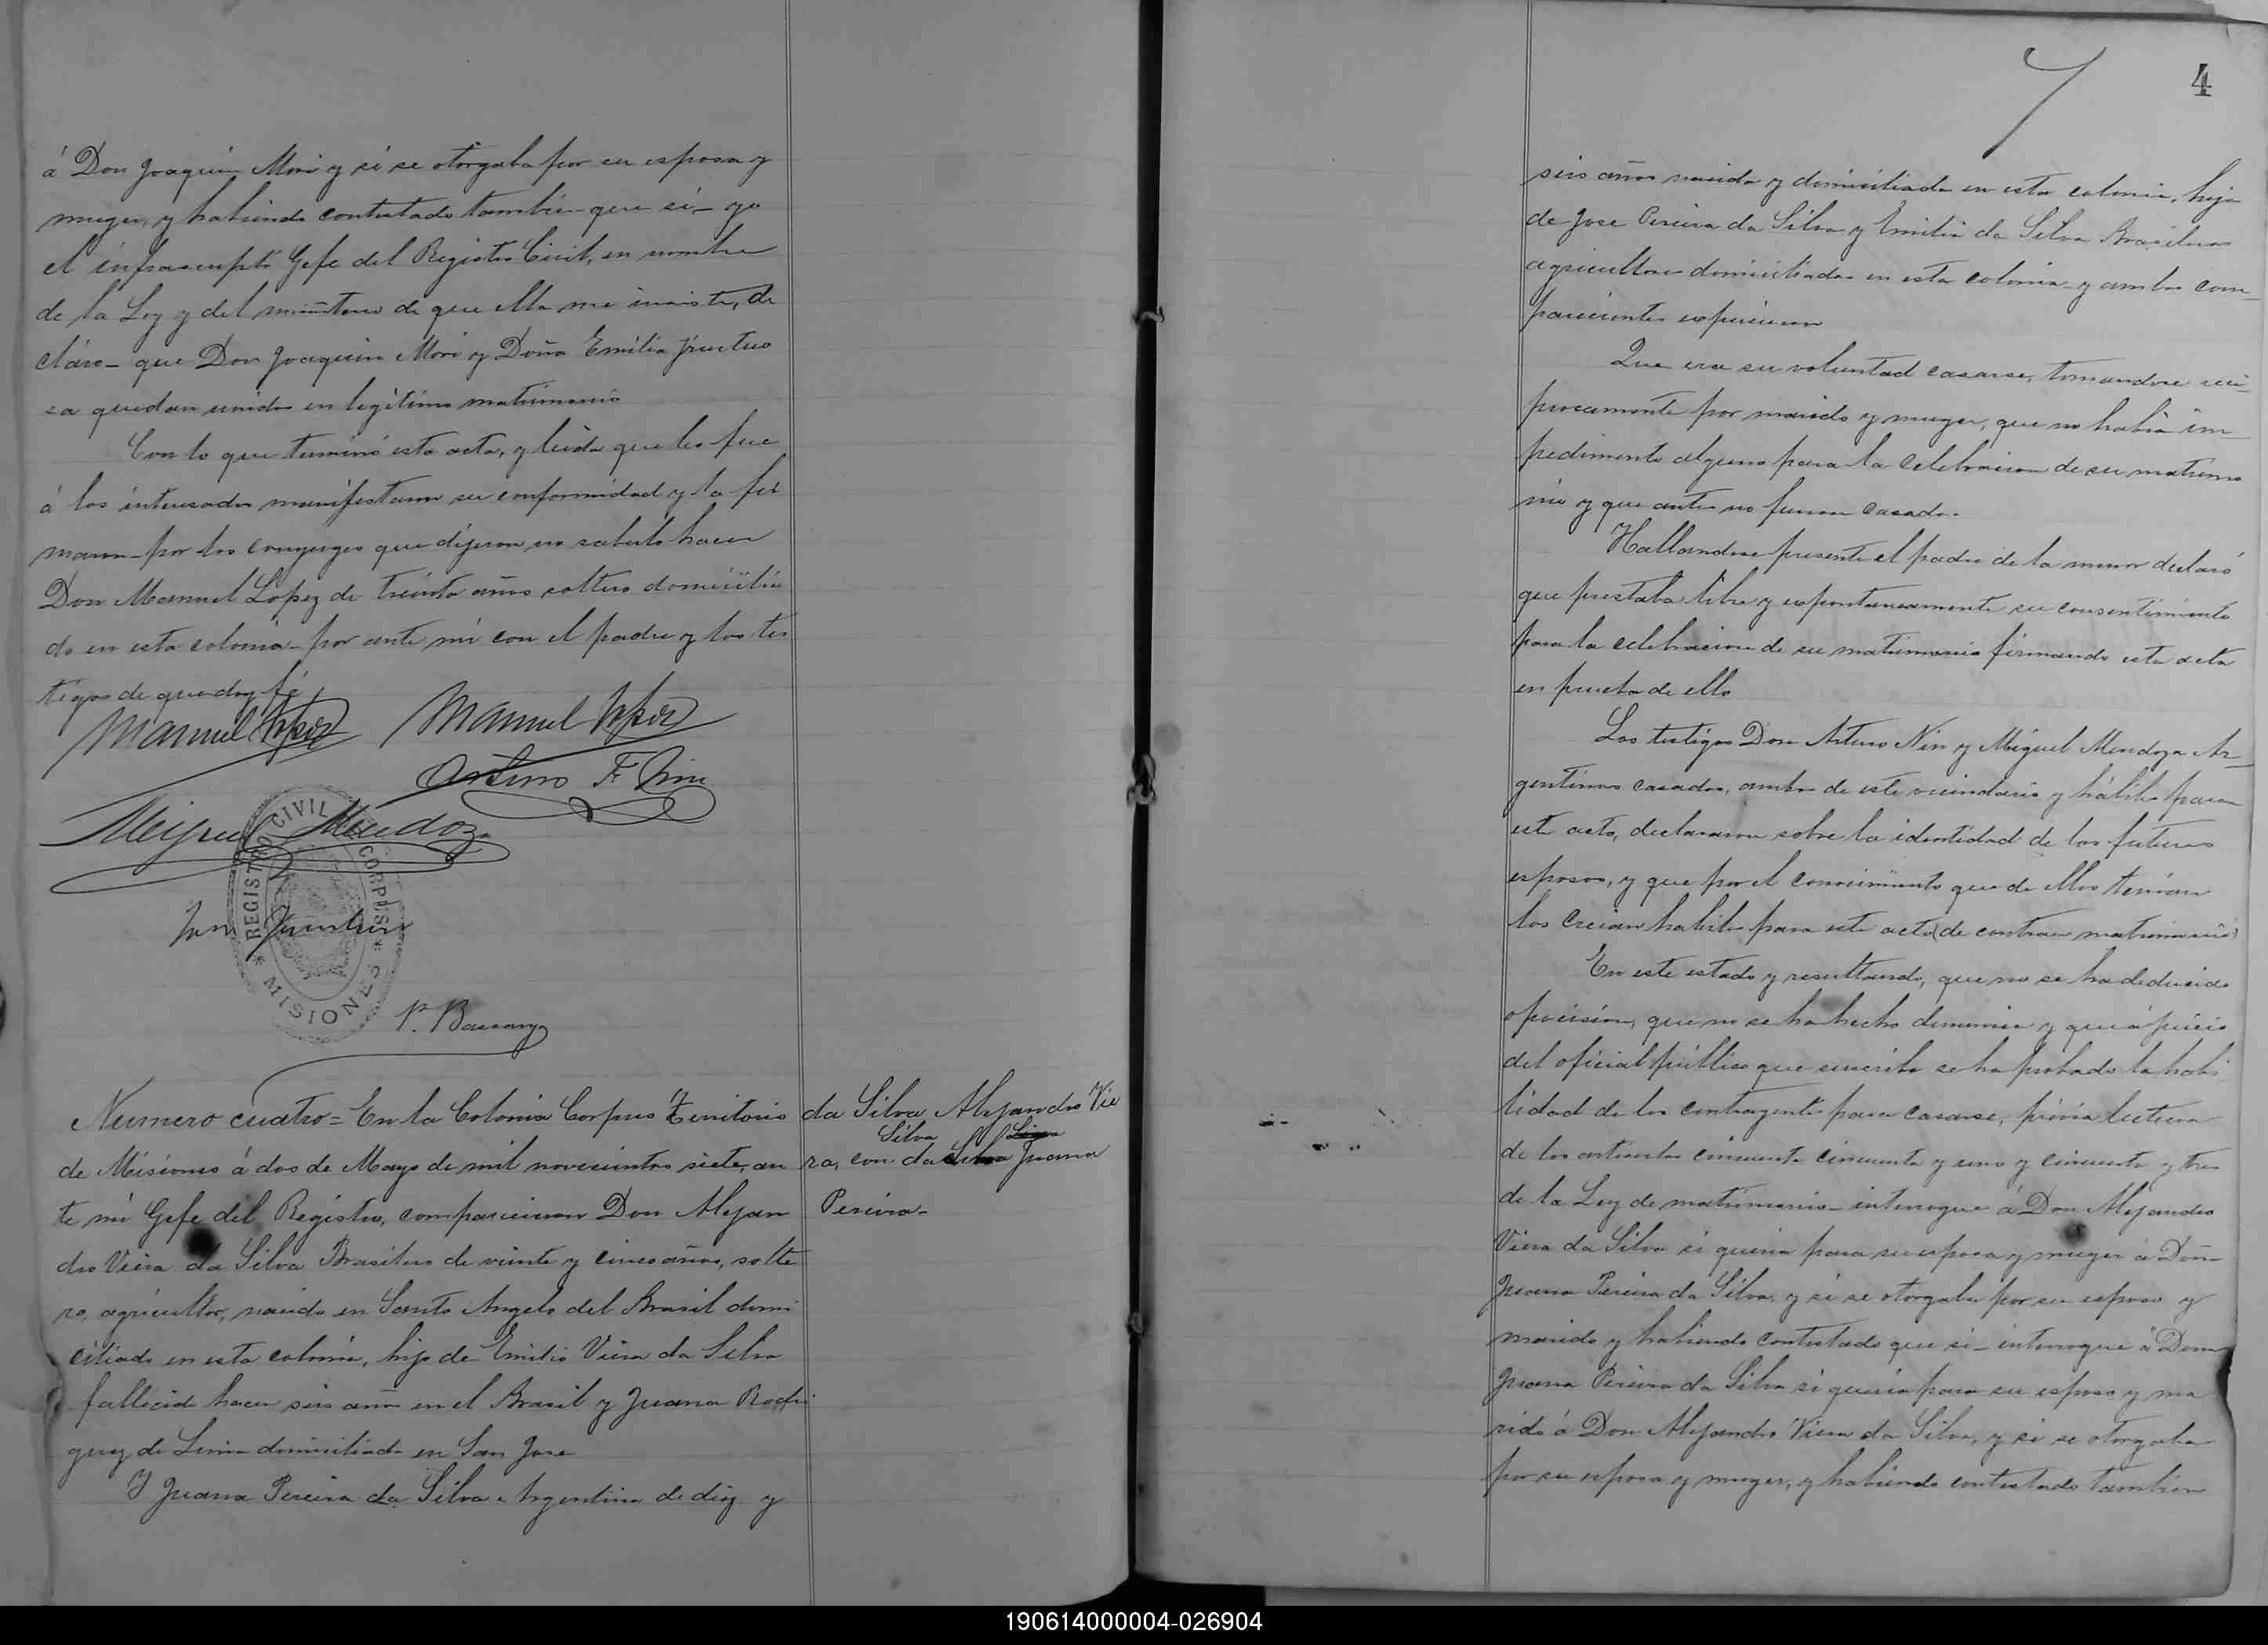 á Don Joaquin Mori y si se otorgaba por su esposa y
muger, y habiendo contestado tambien que si_ yo
el infrascripto Gefe del Registro Civil, en nombre
de la Ley y del ministerio de que ella me inviste, de
claro_ que Don Joaquin Mori y Doña Emilia Fructuo
sa quedan unidos en legitimo matrimonio
Con lo que terminó esta acta, y leida que les fue
á los interesados manifestaron su conformidad y la fir
maron_ por los conyuges que dijeron no saberlo hacer
Don Manuel Lopez de treinta años soltero domicilia
do en esta colonia_ por ante mi con el padre y los tes
tigos de que doy fé
Manuel Lopez Manuel Lopez
Arturo F. Nin
Miguel Mendoza
REGISTRO CIVIL CORPUS
* MISIONES *
P.
Numero cuatro = En la Colonia Corpus Territorio
de Misiones á dos de Mayo de mil novecientos siete, an
te mi Gefe del Registro, comparecieron Don Alejan
dro Vieira da Silva Brasilero de veinte y cinco años, solte
ro, agricultor, nacido en Santo Angelo del Brasil domi
ciliado en esta colonia, hijo de Emilio Vieira da Silva
fallecido hacen seis años en el Brasil y Juana Rodri
guez de Lima domiciliada en San Jose
Y Juana Pereira da Silva Argentina de diez y
da Silva Alejandro Vie
Silva
ra, con da Juana
Pereira_
4
seis años nacida y domiciliada en esta colonia, hija
de Jose Pereira da Silva y Emilia da Silva Brasileros
agricultores domiciliados en esta colonia y ambos com_
parecientes expusieron
Que era su voluntad casarse, tomandose reci_
procamente por marido y muger, que no habia im_
pedimento alguno para la celebracion de su matrimo
nio y que antes no fueron casados.
Hallandose presente el padre de la menor declaró
que prestaba libre y expontaneamente su consentimiento
para la celebracion de su matrimonio firmando esta acta
en prueba de ello
Los testigos Don Arturo Nin y Miguel Mendoza Ar_
gentinos casados, ambos de este vecindario y hábiles para
este acto, declararon sobre la identidad de los futuros
esposos, y que por el conocimiento que de ellos tenian
los creian habiles para este acto (de contraer matrimonio)
En este estado y resultando, que no se ha deducido
oposicion, que no se ha hecho denuncia y que á juicio
del oficial publico que suscribe se ha probado la habi
lidad de los contrayentes para casarse, prévia lectura
de los articulos cincuenta cincuenta y uno y cincuenta y tres
de la Ley de matrimonio_ interrogué á Don Alejandro
Vieira da Silva si queria para su esposa y muger á Doña
Juana Pereira da Silva, y si se otorgaba por su esposo y
marido y habiendo contestado que si_ interrogué á Doña
Juana Pereira da Silva si queria para su esposo y ma
rido á Don Alejandro Vieira da Silva, y si se otorgaba
por su esposa y muger, y habiendo contestado tambien
190614000004-026904